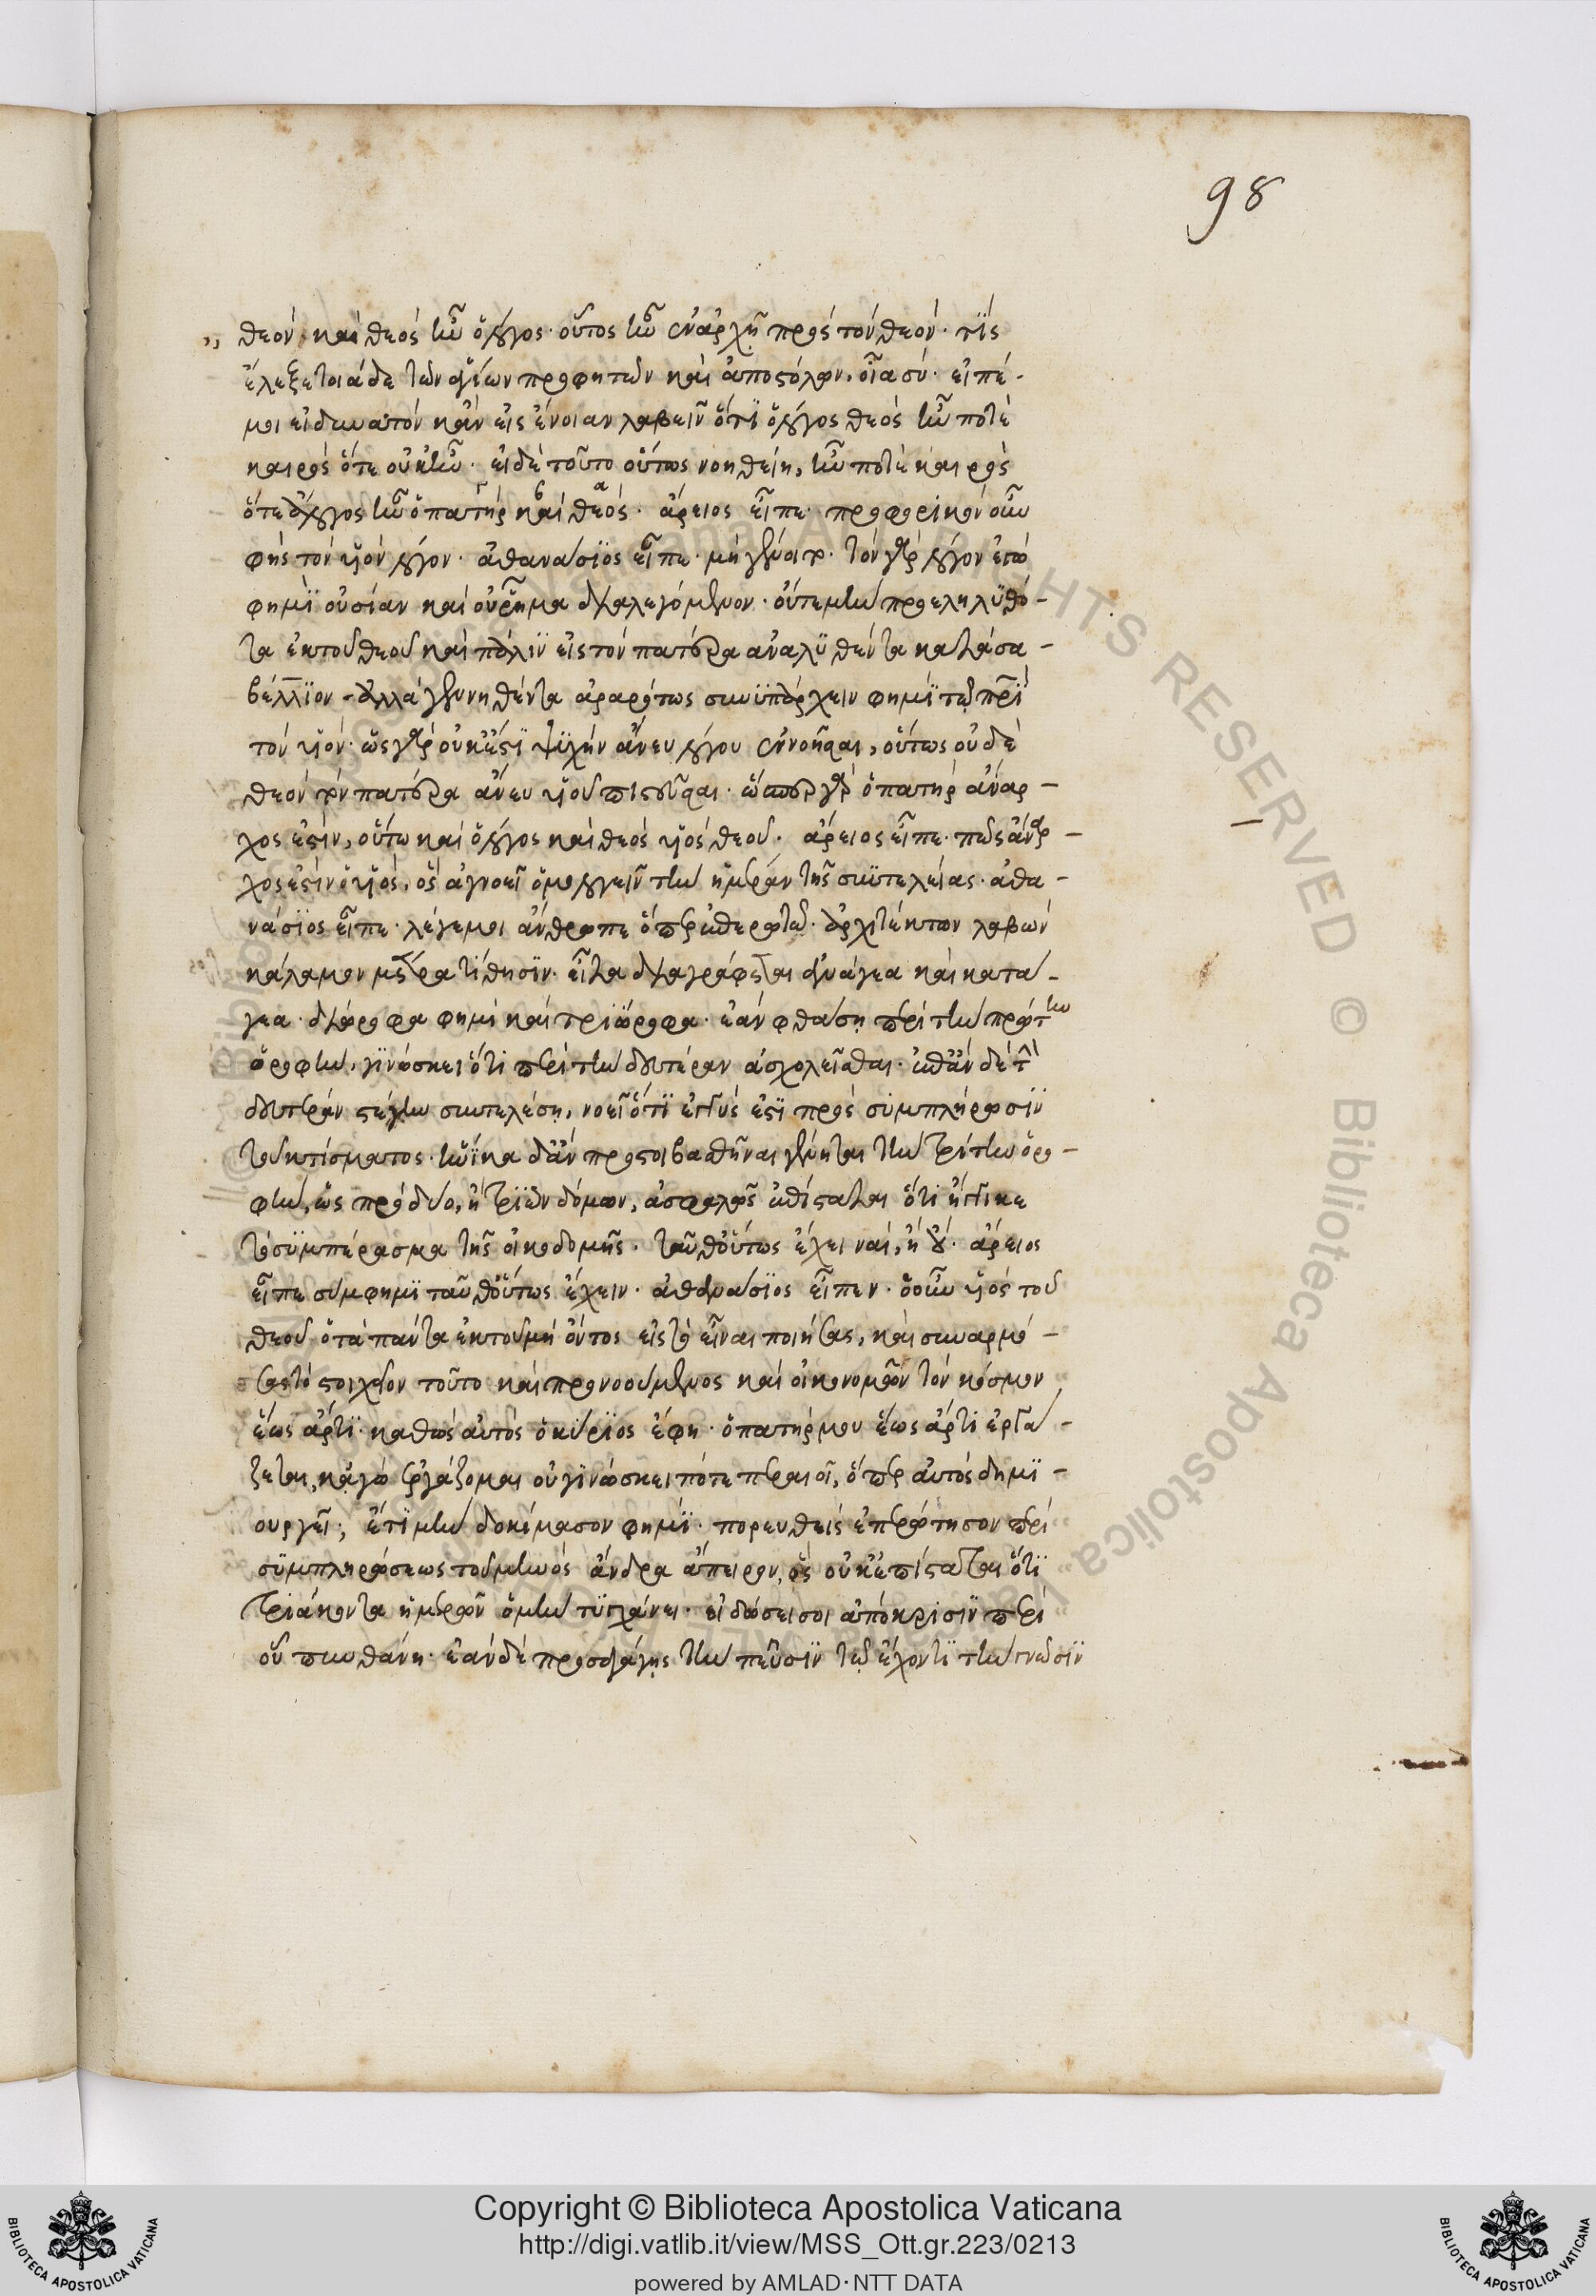 98
θεόν· καὶ θεός ἦν ὁ λόγος· οὗτος ἦν ἐν ἀρχῇ πρὸς τὸν θεόν· τίς
ἔλεξε τοιάδε τῶν ἁγίων προφητῶν καὶ ἀποστόλων, οἷα σύ· εἰπέ
μοι εἰ δυνατὸν κἂν εἰς ἔνοιαν λαβεῖν ὅτι ὁ λόγος θεός ἦν ποτὲ
καιρὸς ὅτε οὐκ ἦν· εἰ δὲ τοῦτο οὕτως νοηθείη, ἦν ποτὲ καιρὸς
ὅτε ἄλογος ἦν ὁ πατήρ καὶ θεός· ἄρειος εἶπε· προφορικὸν οὖν
φῂς τὸν υἱὸν λόγον· ἀθανάσιος εἶπε· μὴ γένοιτο· τὸν γὰρ λόγον ἐγώ
φημι οὐσίαν καὶ οὐ ῥῆμα διαλεγόμενον· οὔτε μὴν προεληλυθό-
τα ἐκ τοῦ θεοῦ καὶ πάλιν εἰς τὸν πατέρα ἀναλυθέντα κατὰ σα-
βέλλιον - ἀλλὰ γεννηθέντα ἀραρότως συνυπάρχειν φημὶ τῷ πρὶ
τὸν υἱόν· ὡς γὰρ οὐκ ἔστι ψυχὴν ἄνευ λόγου ἐννοῆσαι, οὕτως οὐδὲ
θεὸν τὸν πατέρα ἄνευ υἱοῦ πιστεῦσαι· ὥσπερ γὰρ ὁ πατὴρ ἄναρ-
χος ἐστιν, οὕτω καὶ ὁ λόγος καὶ θεὸς υἱὸς θεοῦ· ἄρειος εἶπε· πῶς ἄναρ-
χος ἐστιν ὁ υἱός, ὃς ἀγνοεῖν ὁμολογεῖ τὴν ἡμέραν τῆς συντελείας· ἀθα-
νάσιος εἶπε· λέγε μοι ἄνθρωπε ὅπερ ἐρωτῶ· ἀρχιτέκτων λαβών
κάλαμον μέτρα τίθησιν· εἶτα διαγράφεται ἀνάγεα καὶ κατά-
γεα· διώροφα φημὶ καὶ τριώροφα· ἐὰν φθάσῃ περὶ τὴν πρώτην
ὀροφήν, γινώσκει ὅτι περὶ τὴν δευτέραν ἀσχολεῖσθαι· ἐπὰν δὲ τὴν
δευτέραν στέγην συντελέσῃ, νοεῖ ὅτι ἐγγύς ἐστι πρὸς συμπλήρωσιν
τοῦ κτίσματος· ἡνίκα δ' ἂν προστοιβασθῆναι γένηται τὴν τρίτην ὀρο-
φήν, ὡς πρὸ δύο, ἢ τριῶν δόμων, ἀσφαλῶς ἐπίσταται ὅτι ἤγγικε
τὸ συμπέρασμα τῆς οἰκοδομῆς· ταῦθ' οὕτως ἔχει ναί, ἢ οὔ· ἄρειος
εἶπε σύμφημι ταῦθ' οὕτως ἔχειν· ἀθανάσιος εἶπεν· ὁ οὖν υἱὸς τοῦ
θεοῦ ὁ τὰ πάντα ἐκ τοῦ μὴ ὄντος εἰς τὸ εἶναι ποιήσας, καὶ συναρμό-
σας τὸ στοιχεῖον τοῦτο καὶ προνοούμενος καὶ οἰκονομῶν τὸν κόσμον
ἕως ἄρτι· καθὼς αὐτὸς ὁ κύριος ἔφη· ὁ πατήρ μου ἕως ἄρτι ἐργά-
ζεται, κἀγὼ ἐργάζομαι οὐ γινώσκει πότε περαιοῖ, ὅπερ αὐτὸς δημι-
ουργεῖ; ἔτι μὴν δοκίμασον φημί· πορευθεὶς ἐπερώτησον περὶ
συμπληρώσεως τοῦ μηνός ἄνδρα ἄπειρον, ὃς οὐκ ἐπίσταται ὅτι
τριάκοντα ἡμερῶν ὁ μὴν τυγχάνει· εἰ δώσει σοι ἀπόκρισιν περὶ
οὗ πυνθάνῃ· ἐὰν δὲ προσαγάγῃς τὴν πεῦσιν τῷ ἔχοντι τὴν γνῶσιν
Copyright © Biblioteca Apostolica Vaticana
http://digi.vatlib.it/view/MSS_Ott.gr.223/0213
powered by AMLAD·NTT DATA
BIBLIOTECA APOSTOLICA VATICANA
BIBLIOTECA APOSTOLICA VATICANA